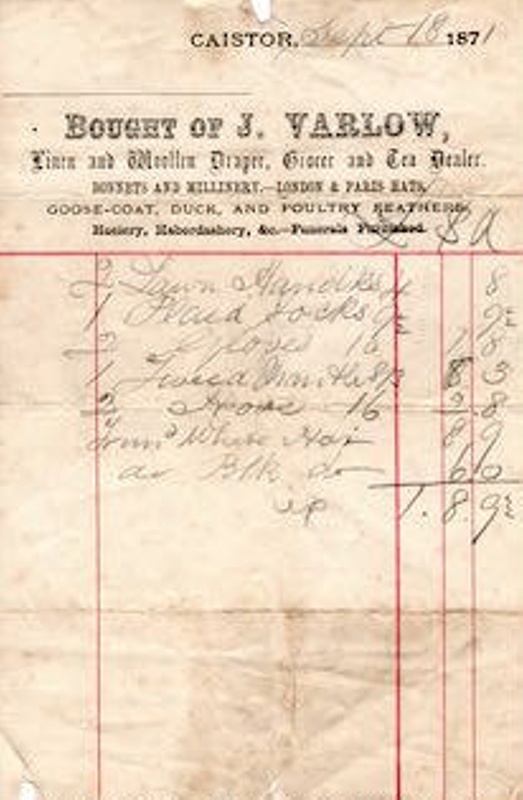 CAISTOR, Sept 18 1871
BOUGHT OF J. VARLOW,
Linen and Woollen Draper, Grocer and Tea Dealer.
BONNETS AND MILLINERY.—LONDON & PARIS HATS.
GOOSE-COAT, DUCK, AND POULTRY FEATHERS.
Hosiery, Haberdashery, &c.—Funerals Furnished.
2 Lawn Handkfs 4 8
1 Plaid Socks 9½ 9½
2 Gloves
1 Tweed 8/3 8 3
2 16 2.8
White Hat 8 9
do Blk do 6 6
1. 8. 9½